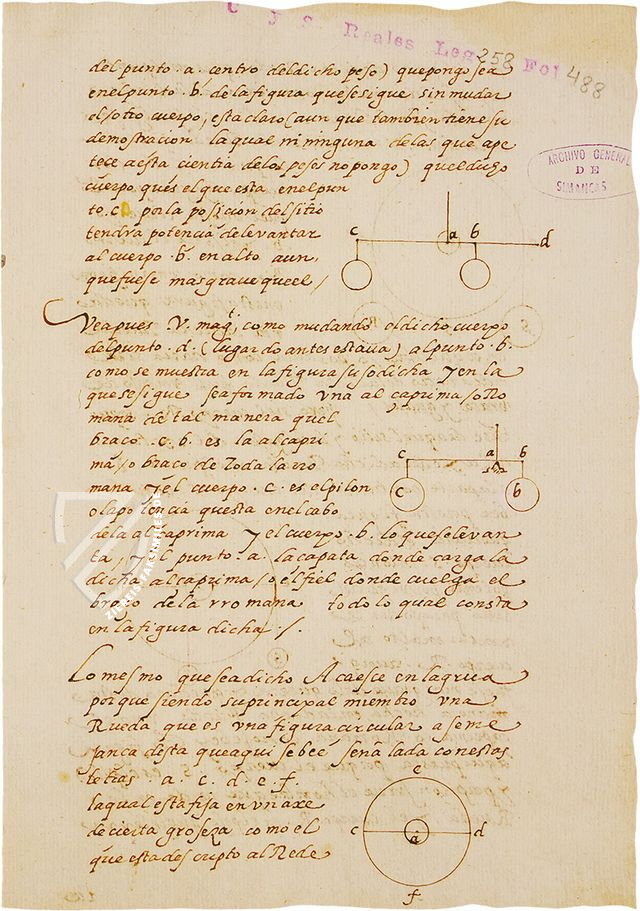 C y S. Reales Leg 258 Fol 488
del punto .a. centro del dicho peso) que pongo sea
en el punto .b. de la figura que se sigue sin mudar
el otro cuerpo, esta claro (aun que tambien tiene su
demostracion la qual ni ninguna de las que ape
tece aesta cientia de los pesos no pongo) quel dicho
cuerpo ques el que esta en el pun
to .c. por la posicion del sitio
tendra potencia de levantar
al cuerpo .b. en alto aun,
que fuese mas grave que el /
ARCHIVO GENERAL
DE
SIMANCAS
c a b d
Vea pues V. magt, como mudando el dicho cuerpo
del punto .d. (lugar do antes estava) al punto .b.
como se muestra en la figura susodicha y en la
que se sigue sea formado vna alcaprima / o Ro
mana de tal manera quel
braco .c. b. es la alcapri
ma / o braco de toda la rro
mana y el cuerpo .c. es el pilon
o la potencia questa en el cabo
de la alcaprima y el cuerpo .b. lo que se levan
ta, y el punto .a. la capata donde carga la
dicha alcaprima / o el fiel donde cuelga el
braço de la rromana todo lo qual consta
en la figura dicha ./.
c a b
c b
Lo mesmo que sea dicho Acaesce en la grua
por que siendo su principal miembro vna
Rueda que es vna figura circular a seme
janca desta que aqui se bee señalada con estas
letras a. c. d. e. f.
la qual esta fija en vn axe
de cierta groseza como el
que esta descripto al Rede
e
c a d
f